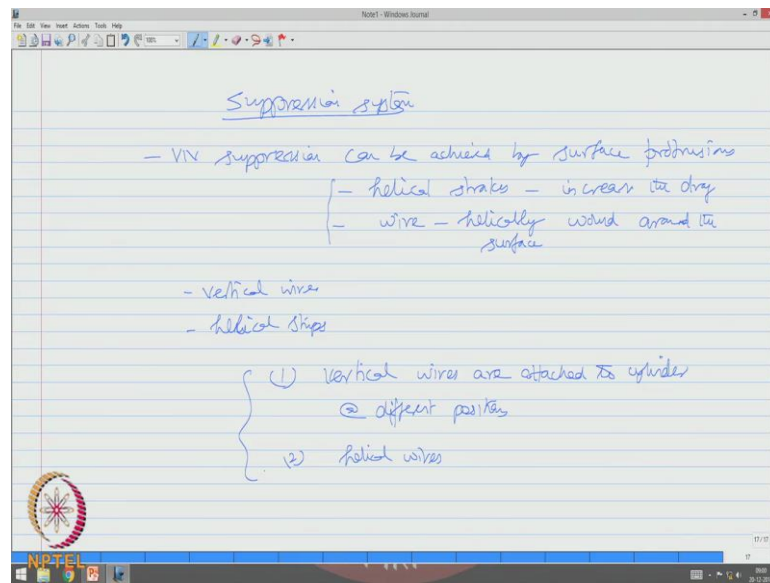 Note1 - Windows Journal
File Edit View Insert Actions Tools Help
Suppression system
- VIV suppression can be achieved by surface protrusions
- helical strakes - increase the drag
- wire - helically wound around the
surface
- vertical wires
- helical strips
(1) vertical wires are attached to cylinder
@ different positions
(2) helical wires
NPTEL
17/17
17